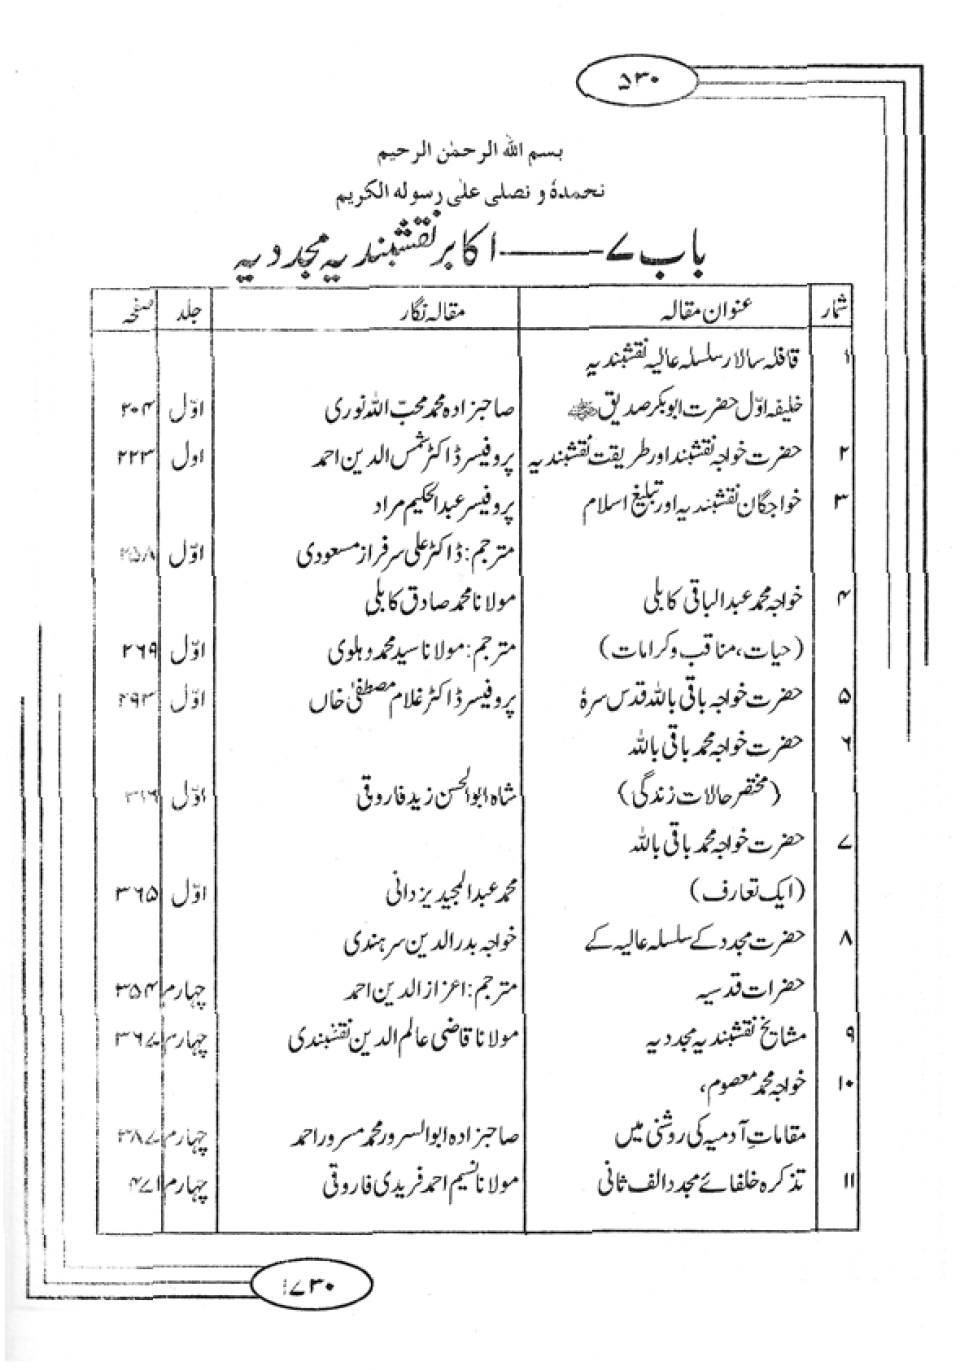 ۵۳۰
بسم الله الرحمٰن الرحیم
نحمدہٗ و نصلی علٰی رسولہ الکریم
باب ۷ ——— اکابر نقشبندیہ مجددیہ
شمار عنوان مقالہ مقالہ نگار جلد صفحہ
۱ قافلہ سالار سلسلہ عالیہ نقشبندیہ
خلیفہ اوّل حضرت ابوبکر صدیق صاحبزادہ محمد محبّ اللہ نوری اوّل ۲۰۴
۲ حضرت خواجہ نقشبند اور طریقت نقشبندیہ پروفیسر ڈاکٹر شمس الدین احمد اول ۲۲۳
۳ خواجگان نقشبندیہ اور تبلیغ اسلام پروفیسر عبدالحکیم مراد
مترجم: ڈاکٹر علی سرفراز مسعودی اوّل ۲۵۸
۴ خواجہ محمد عبدالباقی کابلی مولانا محمد صادق کابلی
(حیات، مناقب و کرامات) مترجم: مولانا سید محمد دہلوی اوّل ۲۶۹
۵ حضرت خواجہ باقی باللہ قدس سرہٗ پروفیسر ڈاکٹر غلام مصطفیٰ خاں اوّل ۲۹۳
۶ حضرت خواجہ محمد باقی باللہ
(مختصر حالات زندگی) شاہ ابوالحسن زید فاروقی اوّل ۳۱۶
۷ حضرت خواجہ محمد باقی باللہ
(ایک تعارف) محمد عبدالمجید یزدانی اوّل ۳۶۵
۸ حضرت مجدد کے سلسلہ عالیہ کے خواجہ بدرالدین سرہندی
حضرات قدسیہ مترجم: اعزاز الدین احمد چہارم ۳۵۴
۹ مشایخ نقشبندیہ مجددیہ مولانا قاضی عالم الدین نقشبندی چہارم ۳۶۷
۱۰ خواجہ محمد معصوم،
مقاماتِ آدمیہ کی روشنی میں صاحبزادہ ابوالسرور محمد مسرور احمد چہارم ۳۸۷
۱۱ تذکرہ خلفائے مجدد الف ثانی مولانا نسیم احمد فریدی فاروقی چہارم ۴۷۱
۱۷۳۰